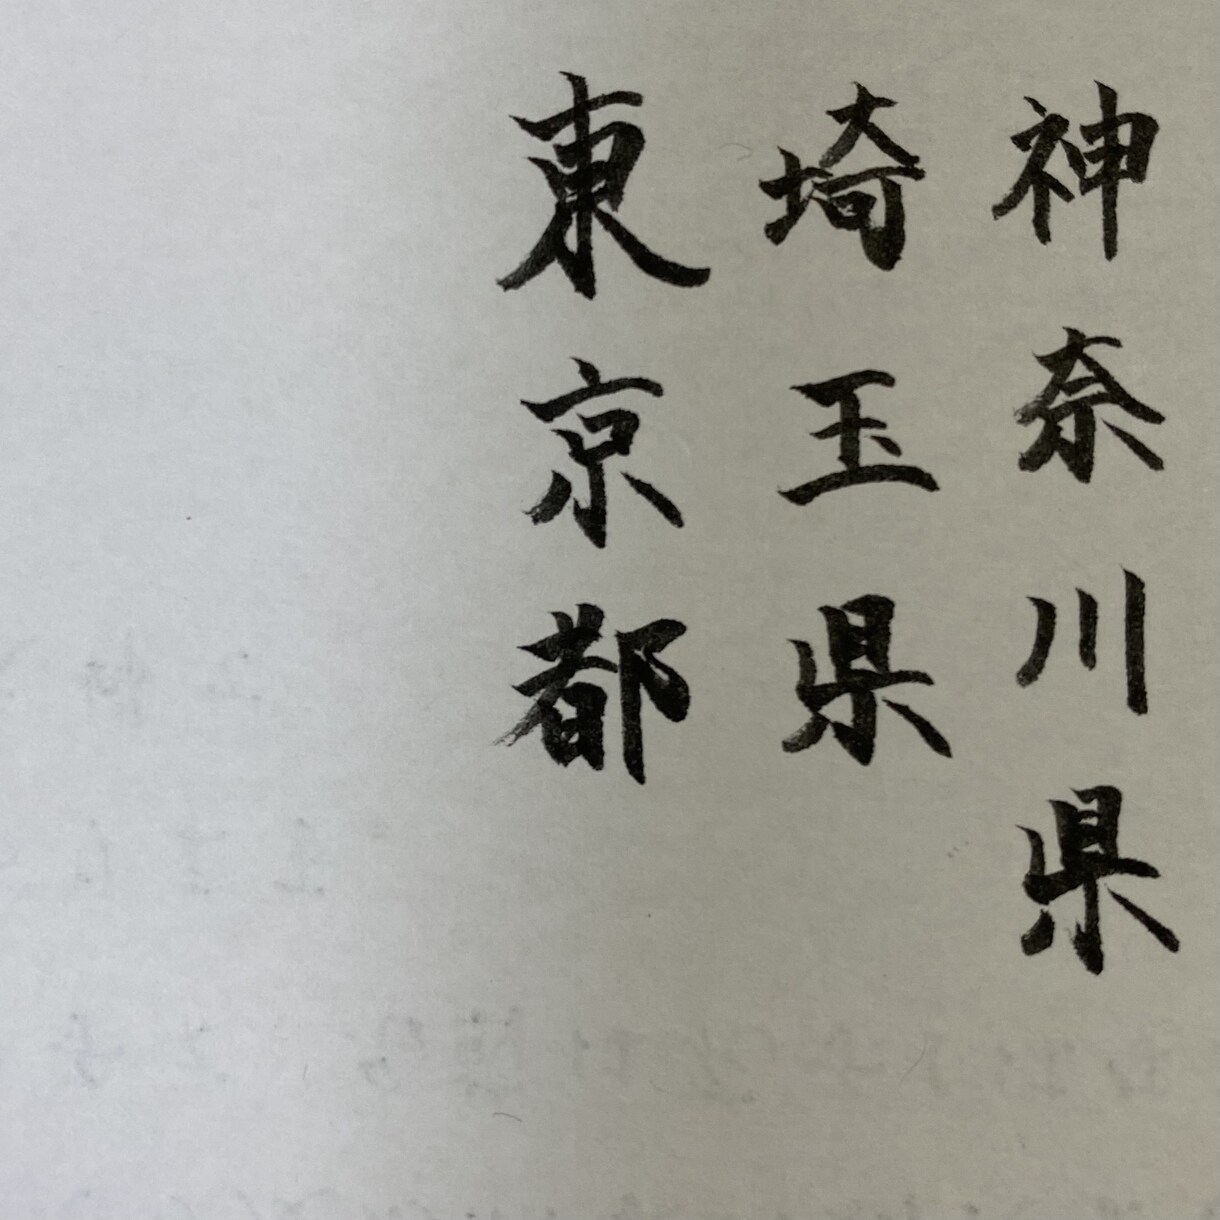 神奈川県
埼玉県
東京都